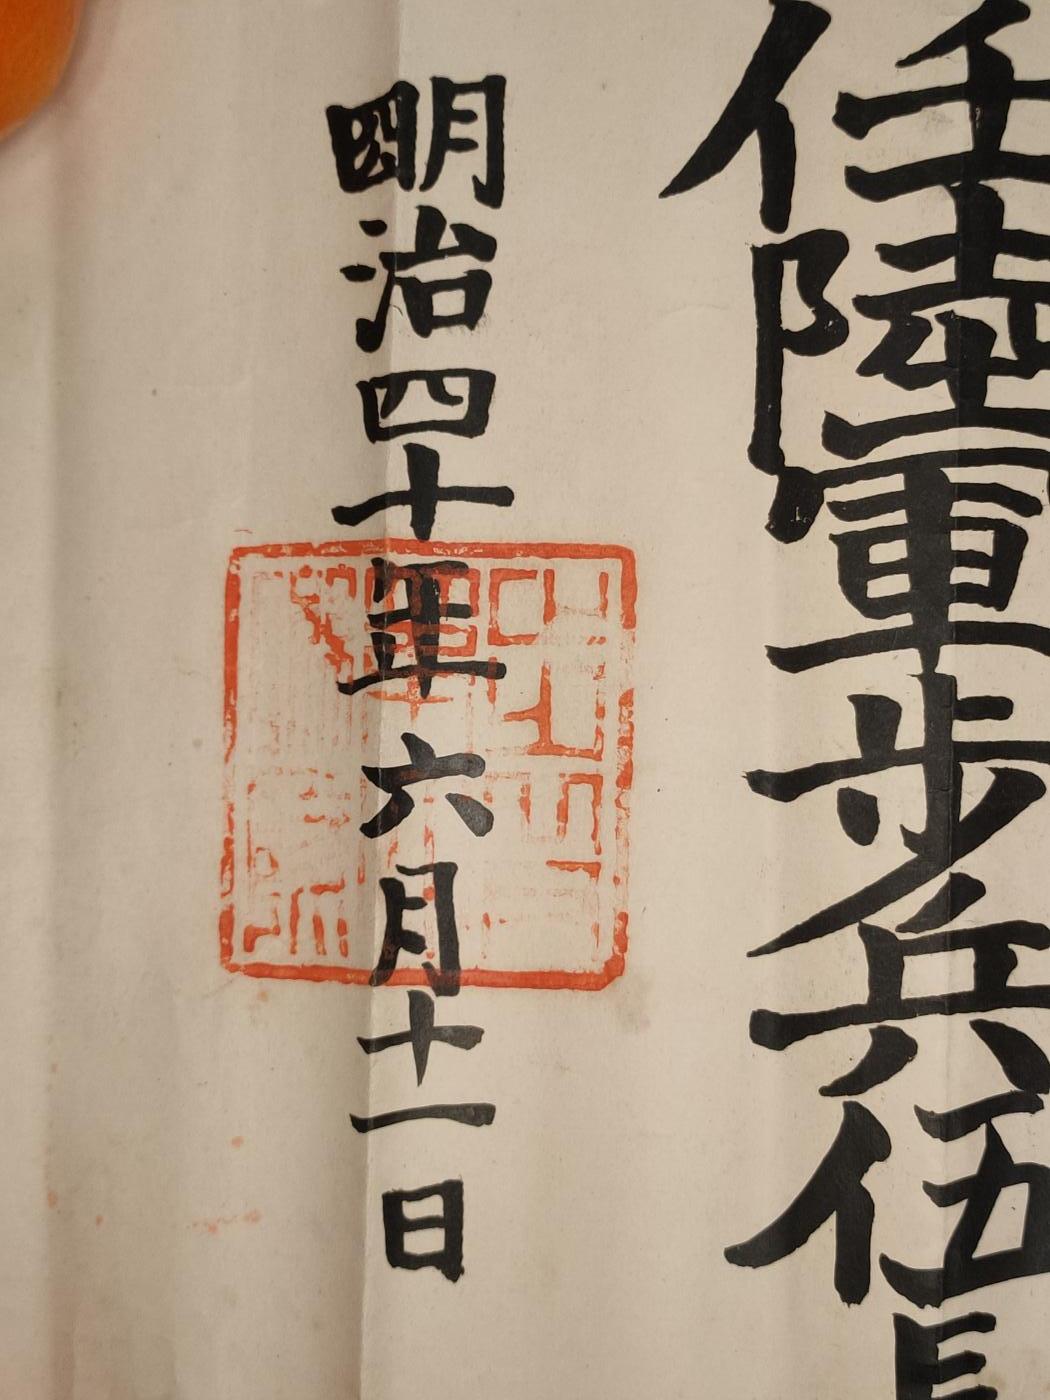 任陸軍歩兵伍長
明治四十年六月十一日